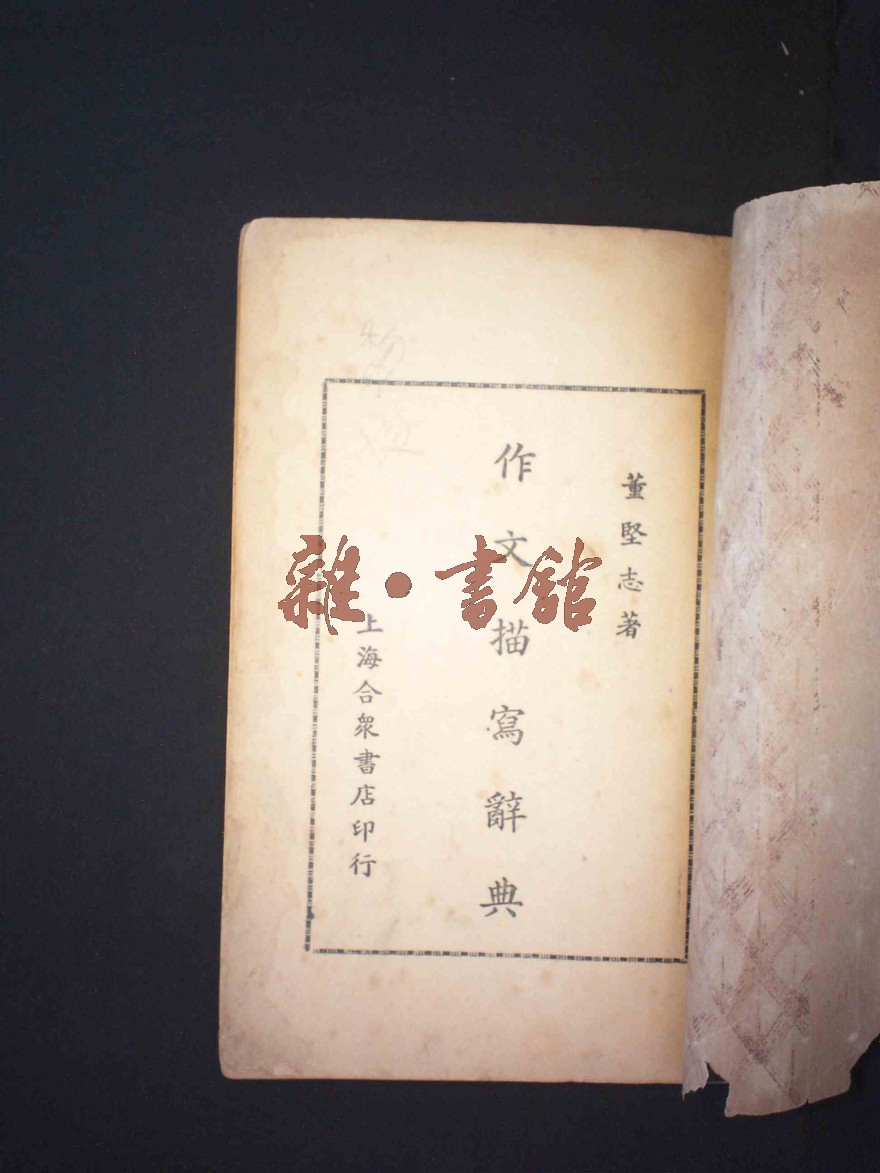 董堅志著
作文描寫辭典
上海合衆書店印行
雜·書館